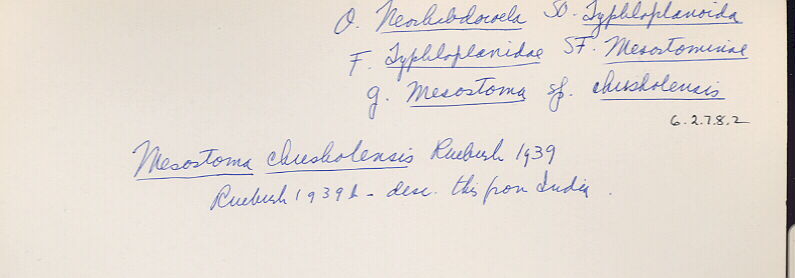 O. Neorhabdocoela SO. Typhloplanoida
F. Typhloplanidae SF. Mesostominae
g. Mesostoma sp. chusholensis
6.2.7.8.2
Mesostoma chusholensis Ruebush 1939
Ruebush 1939b - desc. this from India.